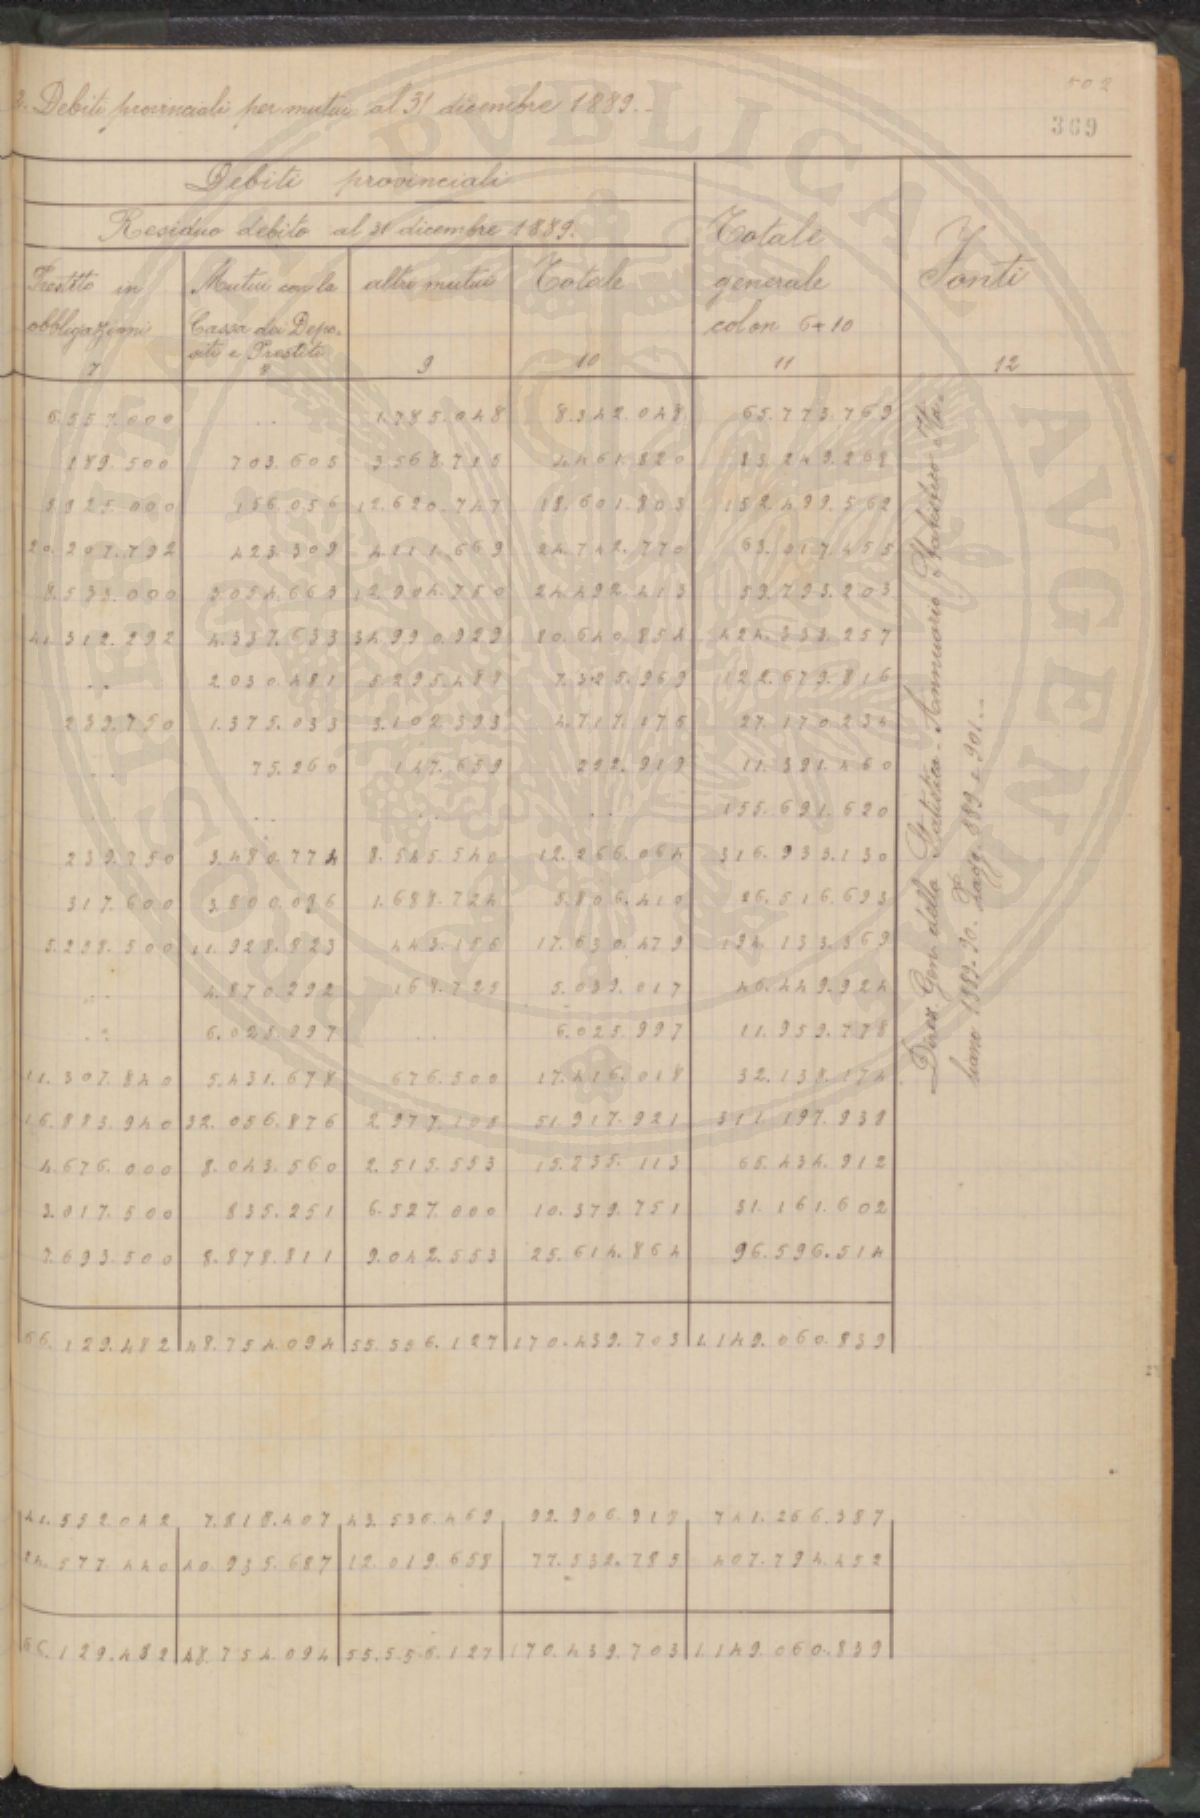 502
369
Debiti provinciali per mutui al 31 dicembre 1889.-
Debiti provinciali
Residuo debito al 31 dicembre 1889.
Totale generale colon 6+10
Fonti
Prestito in obbligazioni
Mutui con la Cassa dei Depositi e Prestiti
altri mutui
Totale
7 8 9 10 11 12
6.557.000 .. 1.785.048 8.342.048 65.773.769
189.500 703.605 3.568.715 4.461.820 83.249.268
5.825.000 156.056 12.620.747 18.601.803 152.499.562
20.207.792 423.309 4.111.669 24.742.770 63.017.455
8.533.000 3.054.663 12.904.750 24.492.413 59.793.203
41.312.292 4.337.633 34.990.929 80.640.854 424.333.257
.. 2.030.481 5.295.488 7.325.969 122.679.816
239.750 1.375.033 3.102.393 4.717.176 27.170.234
.. 75.260 147.659 222.919 11.391.460
.. .. .. .. 155.691.620
239.750 3.480.774 8.545.540 12.266.064 316.933.130
317.600 3.800.086 1.688.724 5.806.410 26.516.693
5.258.500 11.928.823 443.156 17.630.479 194.133.369
.. 4.870.292 168.725 5.039.017 46.449.924
.. 6.025.997 .. 6.025.997 11.959.778
11.307.840 5.431.678 676.500 17.416.018 32.138.174
16.883.940 32.056.876 2.977.105 51.917.921 311.197.938
4.676.000 8.043.560 2.515.553 15.235.113 65.434.912
3.017.500 835.251 6.527.000 10.379.751 31.161.602
7.693.500 8.878.811 9.042.553 25.614.864 96.596.514
66.129.482 48.754.094 55.556.127 170.439.703 1.149.060.839
41.552.042 7.818.407 43.536.469 92.906.918 741.266.387
24.577.440 40.935.687 12.019.658 77.532.785 407.794.452
66.129.482 48.754.094 55.556.127 170.439.703 1.149.060.839
Direz. Gen. della Statistica - Annuario Statistico Ita-
liano 1889-90. Pagg. 899 e 901.-